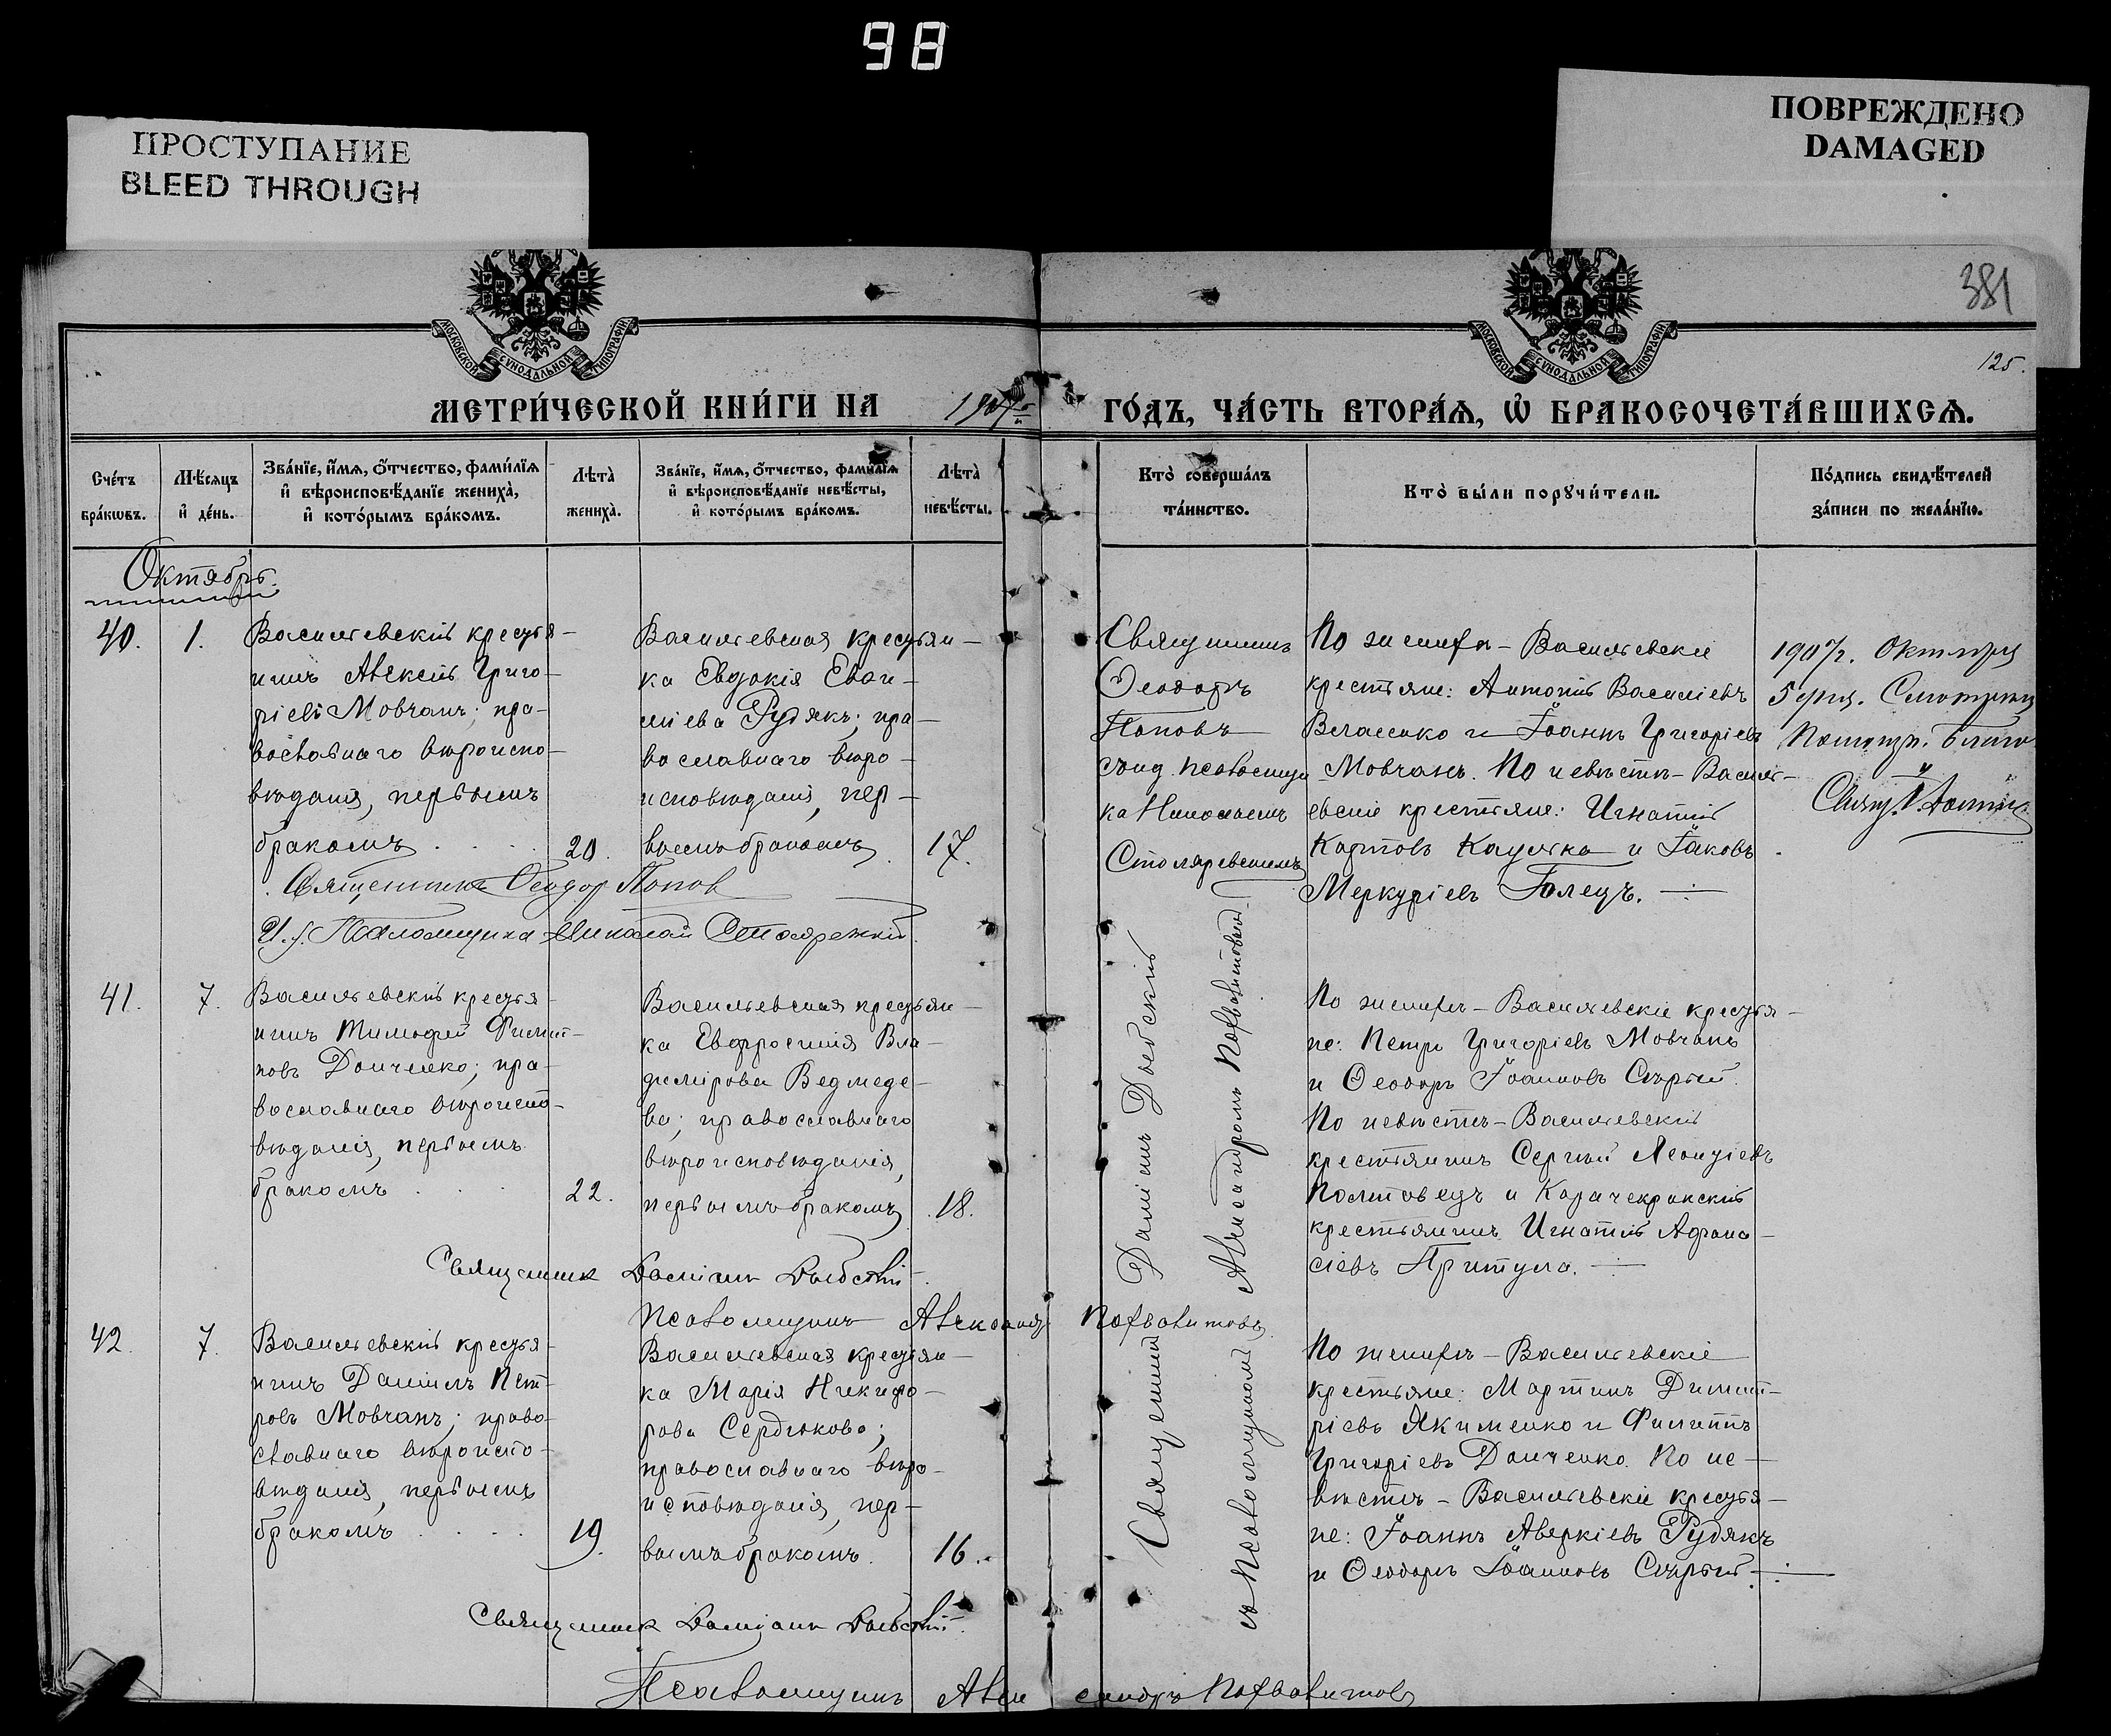 98
ПРОСТУПАНИЕ
BLEED THROUGH
ПОВРЕЖДЕНО
DAMAGED
381
125.
МОСКОВСКОЙ СѴНОДАЛЬНОЙ ТИПОГРАФІИ
МОСКОВСКОЙ СѴНОДАЛЬНОЙ ТИПОГРАФІИ
МЕТРИ́ЧЕСКОЙ КНИ́ГИ НА 1907 ГО́ДЪ, ЧА́СТЬ ВТОРА́Ѧ, Ѡ҆ БРАКОСОЧЕТА́ВШИХСѦ.
Сче́тъ
бра́кѡвъ.
Мѣ́сяцъ
и҆ де́нь.
Зва́нїе, и҆́мѧ, ѻ҆́тчество, фами́лїѧ
и҆ вѣроисповѣ́данїе жениха̀,
и҆ кото́рымъ бра́комъ.
Лѣта̀
жениха̀.
Зва́нїе, и҆́мѧ, ѻ҆́тчество, фами́лїѧ
и҆ вѣроисповѣ́данїе невѣ́сты,
и҆ кото́рымъ бра́комъ.
Лѣта̀
невѣ́сты.
Кто̀ соверша́лъ
та́инство.
Кто̀ бы́ли порꙋчи́тели.
По́дпись свидѣ́телей
за́писи по жела́нїю.
Октябрь.
40.
1.
Васильевскій крестья-
нинъ Алексій Григо-
ріевъ Мовчанъ; пра-
вославнаго вѣроиспо-
вѣданія, первымъ
бракомъ . . . .
20.
Васильевская крестьян-
ка Евдокія Еван-
міева Рудякъ; пра-
вославнаго вѣро-
исповѣданія, пер-
вымъ бракомъ.
17.
Священникъ
Ѳеодоръ
Поповъ
съ и.д. псаломщи
ка Николаемъ
Столяревскимъ
По женихѣ - Васильевскіе
крестьяне: Антоній Василіевъ
Власенко и Іоаннъ Григоріевъ
Мовчанъ. По невѣстѣ - Василь-
евскіе крестьяне: Игнатій
Карповъ Кацулка и Іаковъ
Меркуріевъ Голецъ.
1907 г. Октября
5 дня.
Священникъ Ѳеодор Попов
И. д. Псаломщика Николай Столяревскій
41.
7.
Васильевскій крестья-
нинъ Тимофей Филип-
повъ Донченко; пра-
вославнаго вѣроиспо-
вѣданія, первымъ
бракомъ . . .
22.
Васильевская крестьян-
ка Евфросинія Вла-
димірова Ведмеде-
ва; православнаго
вѣроисповѣданія,
первымъ бракомъ
18.
По женихѣ - Васильевскіе крестья-
не: Петръ Григоріевъ Мовчанъ
и Ѳеодоръ Іоанновъ Сѣрый.
По невѣстѣ - Васильевскій
крестьянинъ Сергій Леонтіевъ
Полтовецъ и Карачекракскій
крестьянинъ Игнатій Афана-
сіевъ Притула.
Священник Даміанъ Доебскій
Псаломщикъ Александръ Похвалитовъ
42.
7.
Васильевскій крестья-
нинъ Даніилъ Пет-
ровъ Мовчанъ; право-
славнаго вѣроиспо-
вѣданія, первымъ
бракомъ . . . .
19.
Васильевская крестьян-
ка Марія Никифо-
рова Сердюкова;
православнаго вѣро-
исповѣданія, пер-
вымъ бракомъ.
16.
Священникъ Даміанъ Доебскій
съ псаломщикомъ Александромъ Похвалитовымъ
По женихѣ - Васильевскіе
крестьяне: Мартинъ Димит-
ріевъ Якименко и Филиппъ
Григоріевъ Донченко. По не-
вѣстѣ - Васильевскіе крестья-
не: Іоаннъ Аверкіевъ Рудякъ
и Ѳеодоръ Іоанновъ Сѣрый.
Священник Даміанъ Доебскій
Псаломщикъ Александръ Похвалитовъ